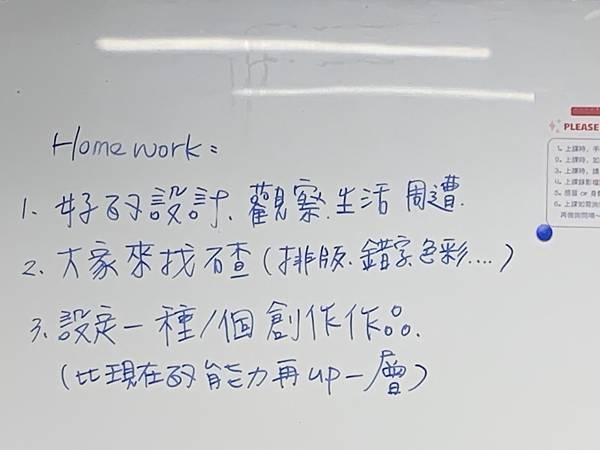 Homework:
1. 好的設計. 觀察.生活 周遭.
2. 大家來找碴(排版.錯字.色彩....)
3. 設定一種/個 創作作品.
(比現在的能力再up一層)
PLEASE
1. 上課時, 手
2. 上課時, 如
3. 上課時, 請
4. 上課錄影檔
5. 感冒 or 身
6. 上課如需詢
再做詢問唷~